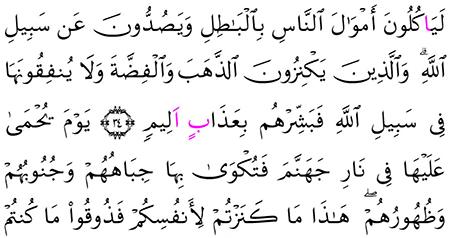 لَيَاكُلُونَ أَمْوَٰلَ النَّاسِ بِالْبَٰطِلِ وَيَصُدُّونَ عَن سَبِيلِ
اللَّهِ ۗ وَالَّذِينَ يَكْنِزُونَ الذَّهَبَ وَالْفِضَّةَ وَلَا يُنفِقُونَهَا
فِى سَبِيلِ اللَّهِ فَبَشِّرْهُم بِعَذَابٍ اَلِيمٍ ۝٣٤ يَوْمَ يُحْمَىٰ
عَلَيْهَا فِى نَارِ جَهَنَّمَ فَتُكْوَىٰ بِهَا جِبَاهُهُمْ وَجُنُوبُهُمْ
وَظُهُورُهُمْ ۖ هَٰذَا مَا كَنَزْتُمْ لِأَنفُسِكُمْ فَذُوقُوا۟ مَا كُنتُمْ